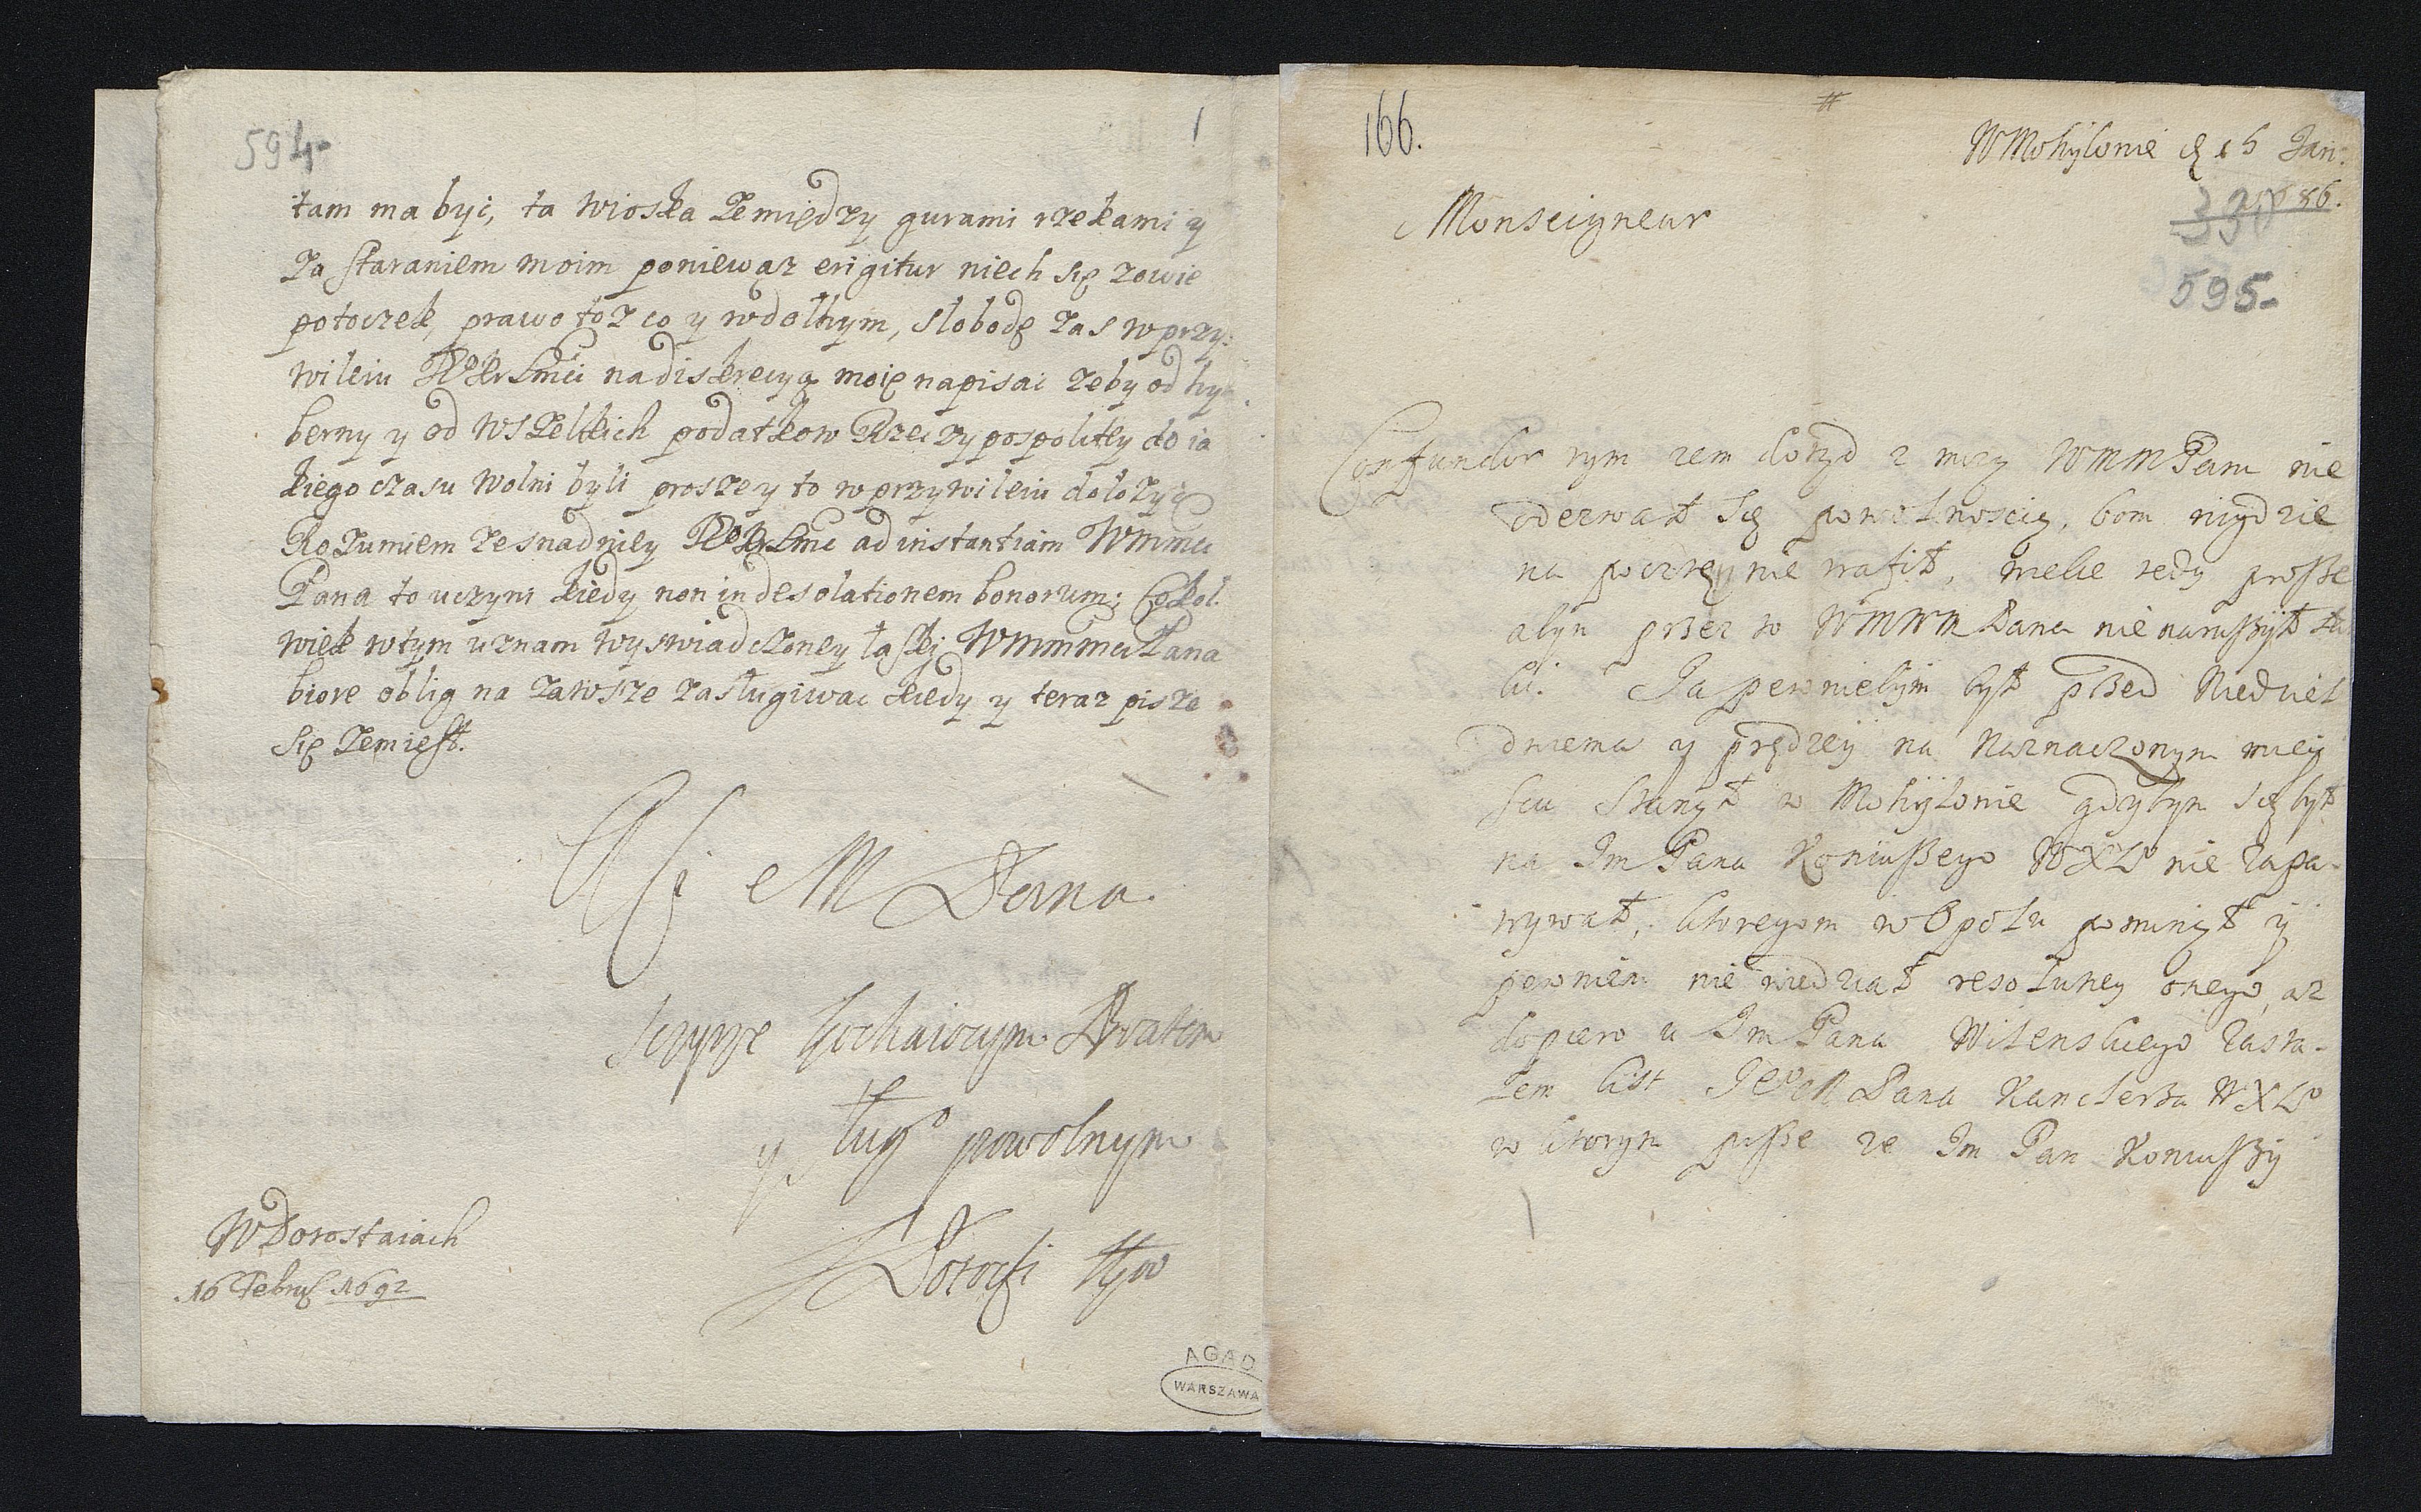 594-
1
tam ma być, ta wioska ze między gurami rzekami y
za staraniem moim poniewaz erigitur niech się zowie
potoczek, prawo toz co y w dolhym, slobodę zas w przy:
wileiu na diskrecyą moię napisać zeby od hy
berny y od wszelkich podatkow Rzeczypospolitey do ia
kiego czasu wolni byli proszę y to w przywileiu dolozyć
Rozumiem ze snadniey ad instantiam Wmmci
Pana to uczyni kiedy non in desolationem bonorum; Cokol.
wiek w tym uznam wyswiadczoney łaski Wmmmci Pana
biore oblig na zawsze zasługiwac kiedy y teraz pisze
się zem iest.
M Pana
Kochaiącym Bratem
y sługą powolnym
Potocki
W Dorostaiach
16 Febru 1692
AGAD
WARSZAWA
166.
#
W Mohylowie d 15 Jan:
86.
595-
Monseigneur
Confundor tym zem dotąd z mczy WMM Panu nie
oderwał się powolnoscią, bom nigdzie
na pocztę nie trafił, wielce tedy prosze
abym przez to WMWM Pana nie naruszył ła
ski. Ja pewniebym był przed Niedziel
dniema y prędzey na naznaczonym miey
scu stanął w Mohylowie gdybym się był
na Im Pana Koniuszego WXL nie zapa-
trywał, ktoregom w Opolu pominął y
pewniem nie wiedział resoluney onego, az
dopiero u Im Pana Wilenskiego zasta-
łem list Pana Kanclerza WXL
w ktorym pisze ze Im Pan Koniuszy